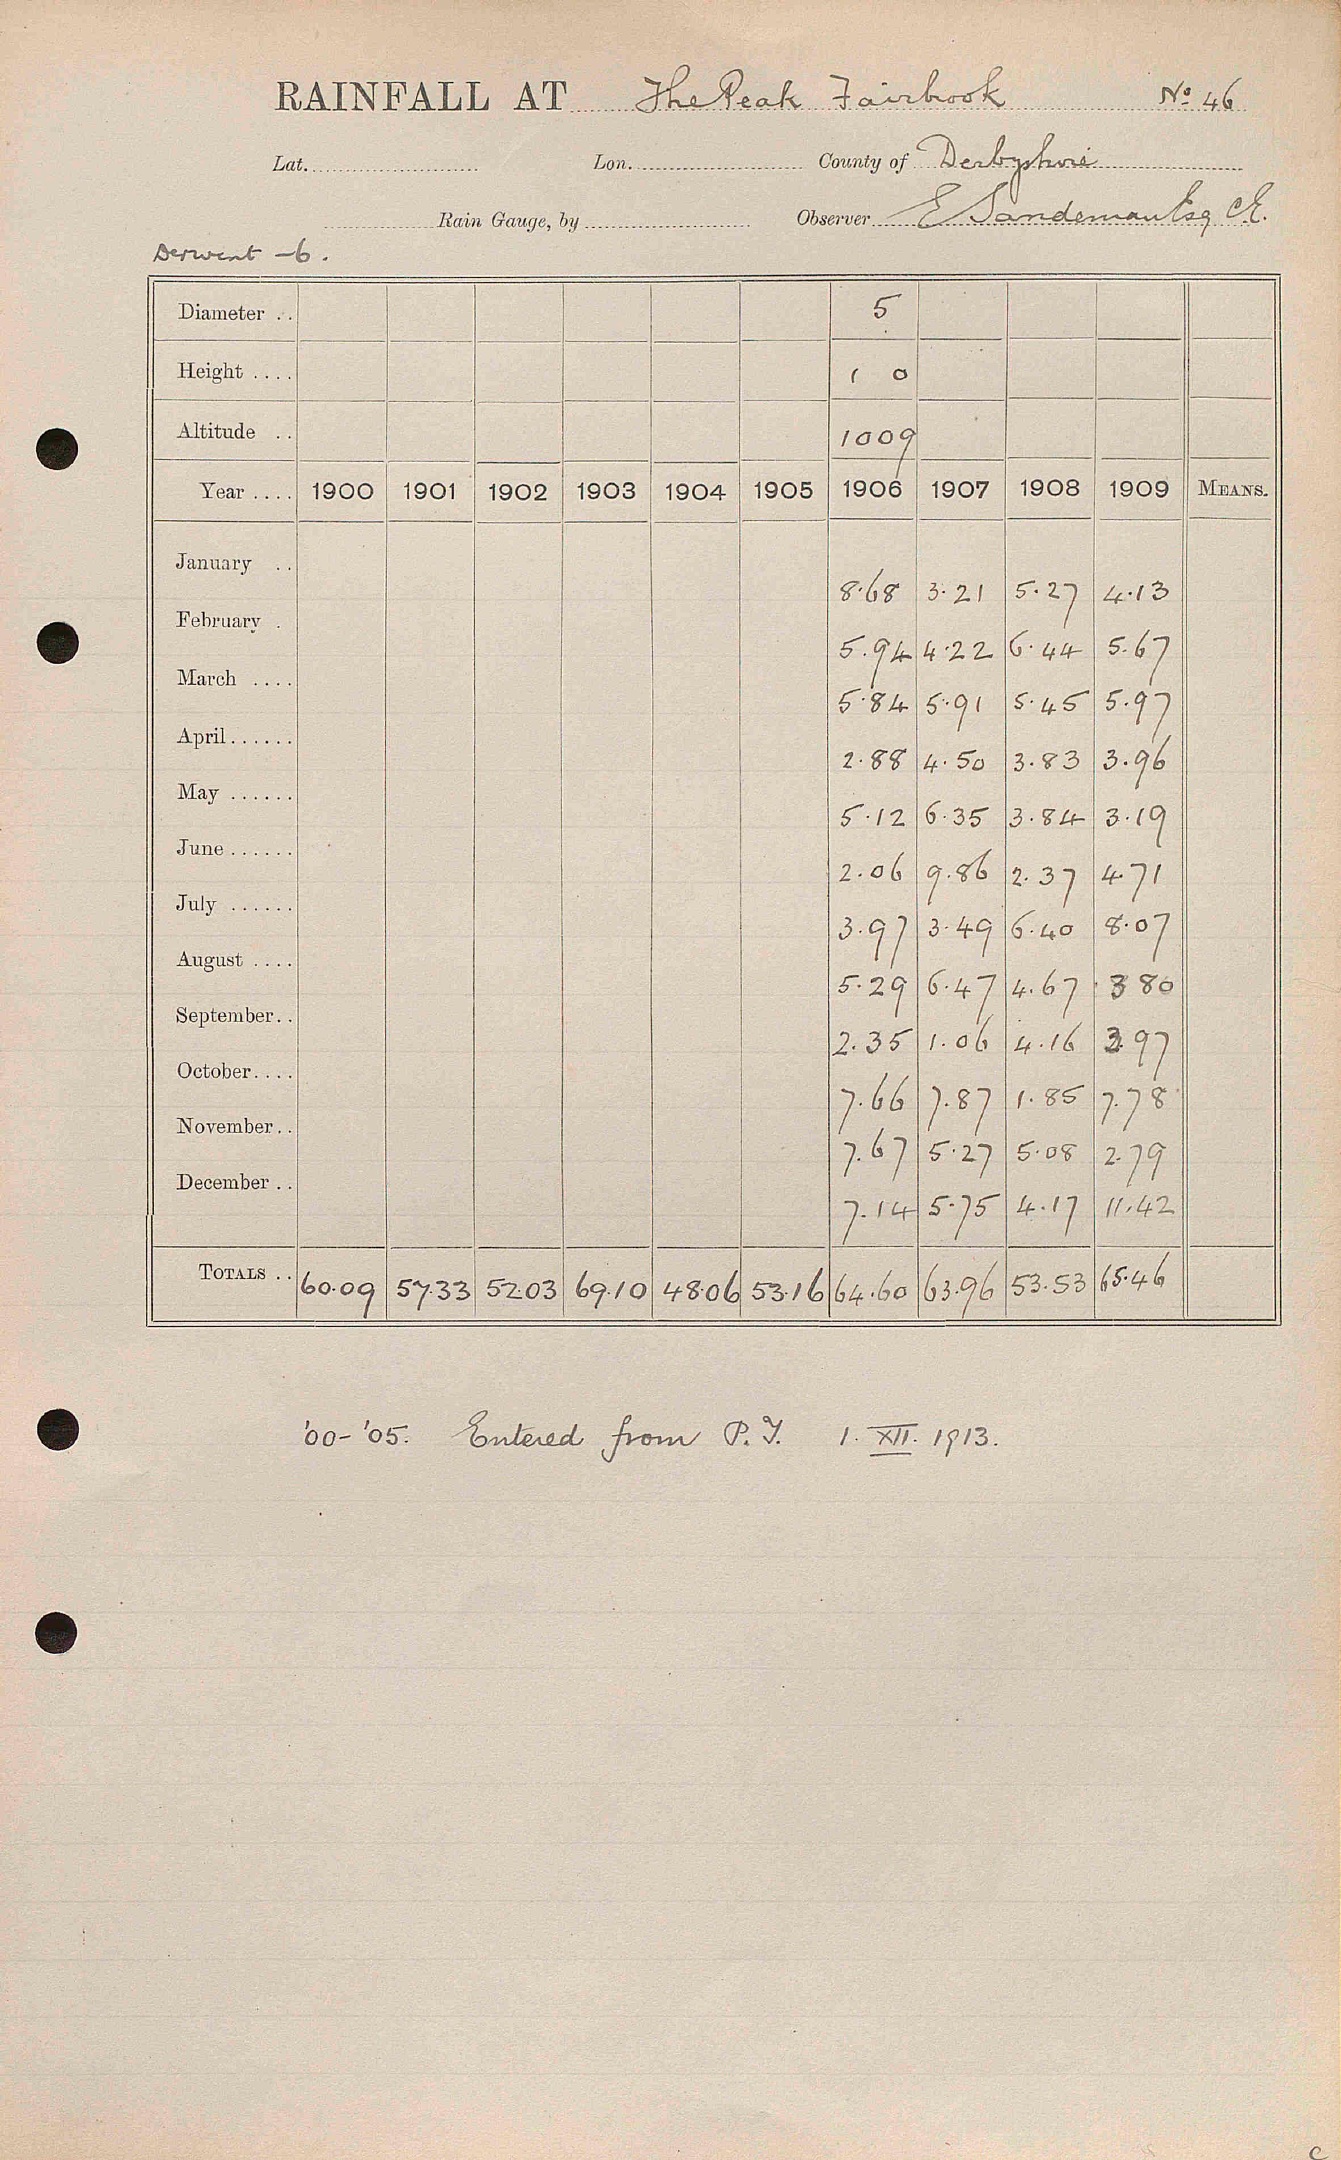 RAINFALL AT The Peak Fairbrook No. 46
Lat. Lon. County of Derbyshire
Rain Gauge, by Observer E Sandeman Esq C.E.
Derwent - 6.
Diameter .. 5
Height .... 1 0
Altitude .. 1009
Year .... 1900 1901 1902 1903 1904 1905 1906 1907 1908 1909 MEANS.
January .. 8.68 3.21 5.27 4.13
February . 5.94 4.22 6.44 5.67
March .... 5.84 5.91 5.45 5.97
April...... 2.88 4.50 3.83 3.96
May ...... 5.12 6.35 3.84 3.19
June ...... 2.06 9.86 2.37 4.71
July ...... 3.97 3.49 6.40 8.07
August .... 5.29 6.47 4.67 3 80
September.. 2.35 1.06 4.16 3.97
October.... 7.66 7.87 1.85 7.78
November.. 7.67 5.27 5.08 2.79
December .. 7.14 5.75 4.17 11.42
TOTALS .. 60.09 57.33 52.03 69.10 48.06 53.16 64.60 63.96 53.53 65.46
'00-'05. Entered from P.Y. 1. XII. 1913.
C